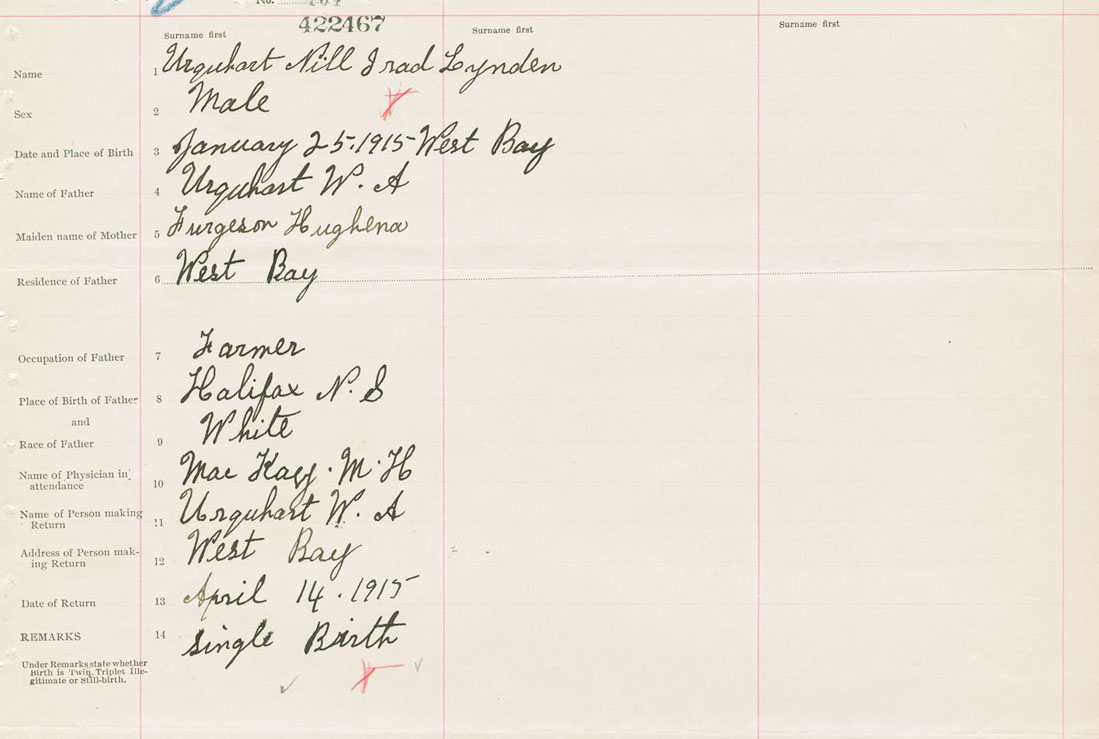 No.
422467
Surname first
Surname first
Surname first
Name 1 Urquhart Nill Irad Lynden
Sex 2 Male
Date and Place of Birth 3 January 25.1915 West Bay
Name of Father 4 Urquhart W. A
Maiden name of Mother 5 Furgeson Hughena
Residence of Father 6 West Bay
Occupation of Father 7 Farmer
Place of Birth of Father 8 Halifax N. S
and
Race of Father 9 White
Name of Physician in
attendance 10 Mac Kay . M. H
Name of Person making
Return 11 Urquhart W. A
Address of Person mak-
ing Return 12 West Bay
Date of Return 13 April 14 . 1915
REMARKS 14 single Birth
Under Remarks state whether
Birth is Twin, Triplet Ille-
gitimate or Still-birth.